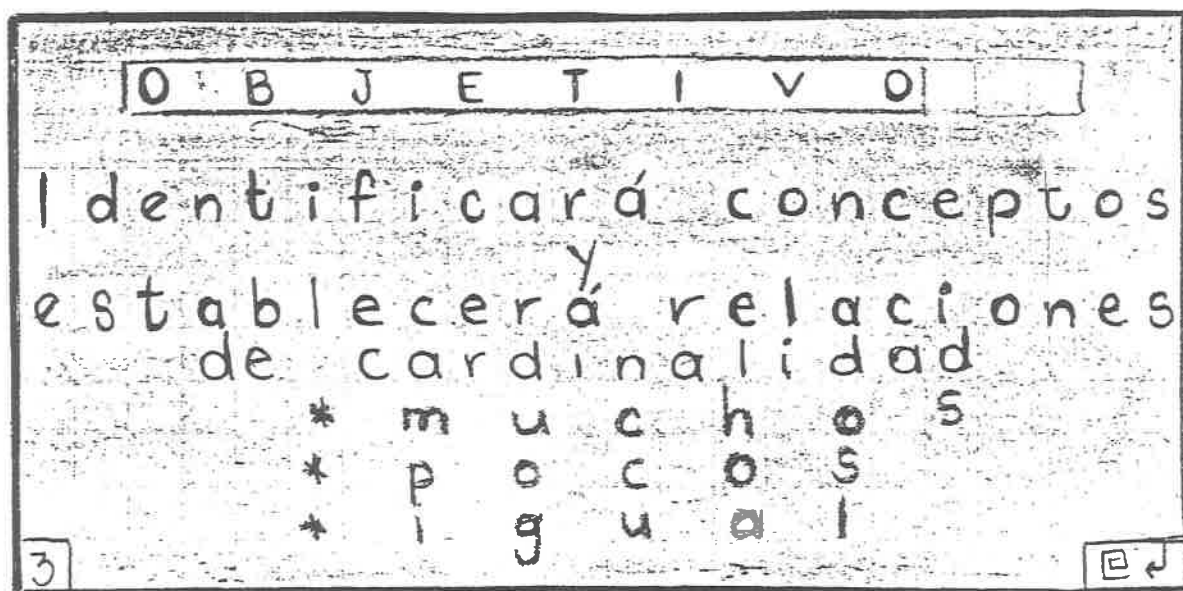 OBJETIVO
Identificará conceptos
y
establecerá relaciones
de cardinalidad
* muchos
* pocos
* igual
3